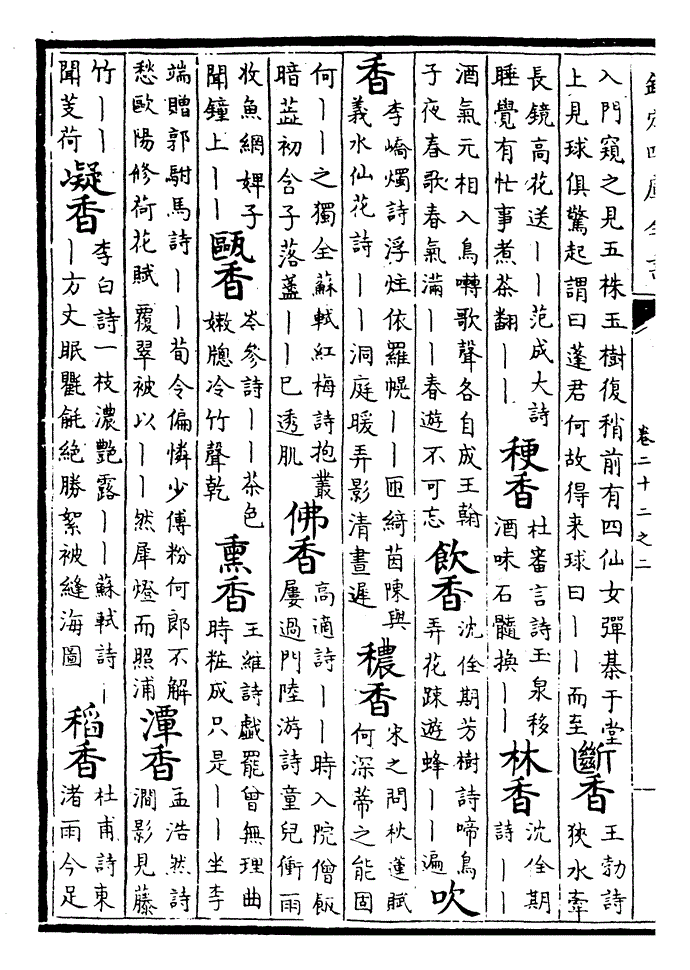 欽定四庫全書
卷二十二之二
入門窺之見五株玉樹復稍前有四仙女彈棊于堂
上見球俱驚起謂曰蓬君何故得来球曰丨丨而至
斷香
王勃詩
狹水牽
長鏡高花送丨丨范成大詩
睡覺有忙事煮茶翻丨丨
稉香
杜審言詩玉泉移
酒味石髓換丨丨
林香
沈佺期
詩丨丨
酒氣元相入鳥囀歌聲各自成王翰
子夜春歌春氣滿丨丨春遊不可忘
飲香
沈佺期芳樹詩啼鳥
弄花踈遊蜂丨丨遍
吹
香
李嶠燭詩浮炷依羅幌丨丨匝綺茵陳與
義水仙花詩丨丨洞庭暖弄影清晝遲
穠香
宋之問秋蓮賦
何深蒂之能固
何丨丨之獨全蘇軾紅梅詩抱叢
暗蕋初含子落盞丨丨已透肌
佛香
高適詩丨丨時入院僧飯
屢過門陸游詩童兒衝雨
收魚網婢子
聞鐘上丨丨
甌香
岑參詩丨丨茶色
嫩牕冷竹聲乾
熏香
王維詩戲罷曾無理曲
時粧成只是丨丨坐李
端贈郭駙馬詩丨丨荀令偏憐少傅粉何郎不解
愁歐陽修荷花賦覆翠被以丨丨然犀燈而照浦
潭香
孟浩然詩
澗影見藤
竹丨丨
聞芰荷
凝香
李白詩一枝濃艷露丨丨蘇軾詩丨
丨方丈眠氍毹絶勝絮被縫海圖
稻香
杜甫詩東
渚雨今足